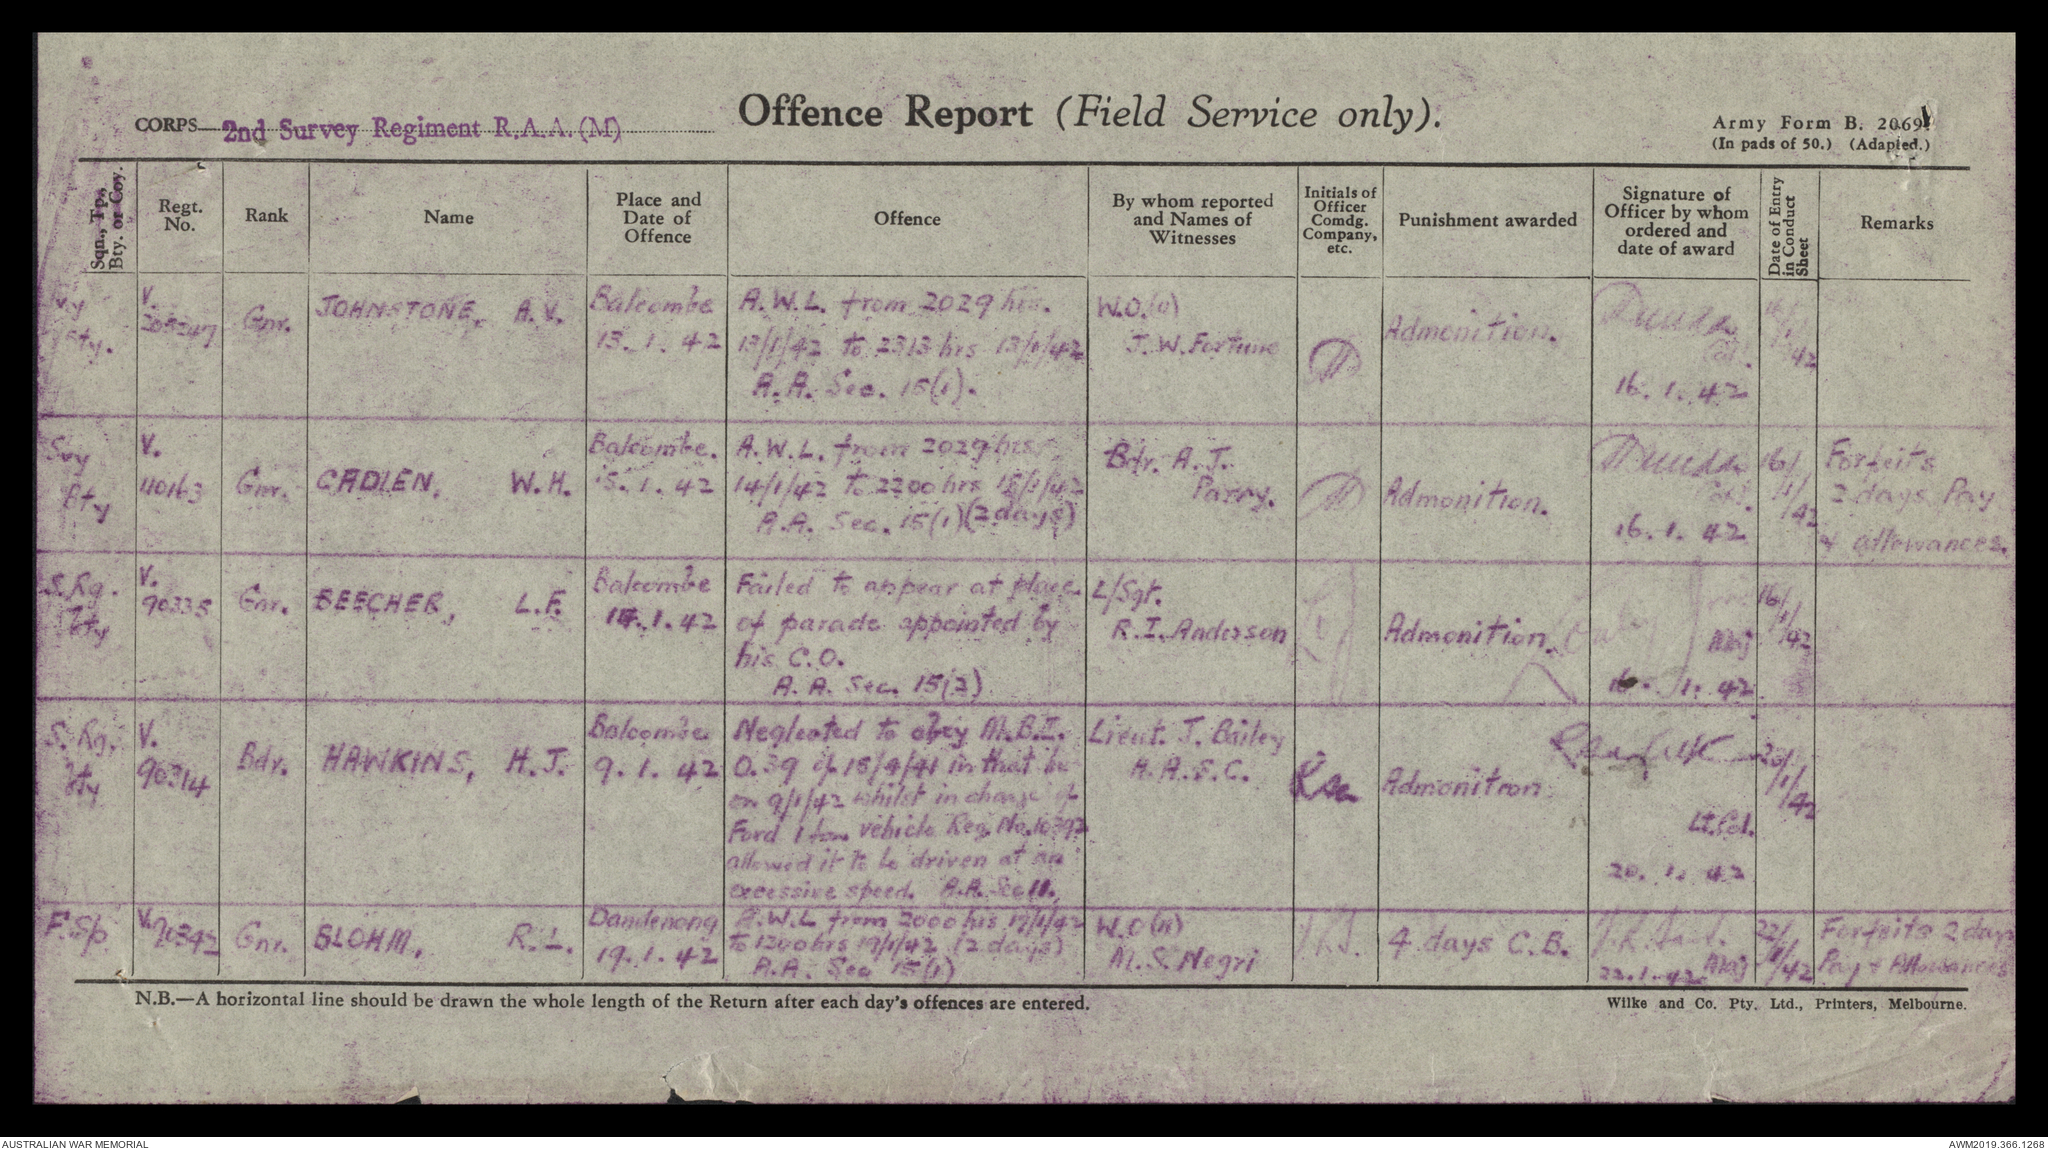 CORPS—2nd Survey Regiment R.A.A.(M)
Offence Report (Field Service only).
Army Form B. 2069.
(In pads of 50.) (Adapted.)
Sqn., Tp., Bty. or Coy.
Regt. No.
Rank
Name
Place and Date of Offence
Offence
By whom reported and Names of Witnesses
Initials of Officer Comdg. Company, etc.
Punishment awarded
Signature of Officer by whom ordered and date of award
Date of Entry in Conduct Sheet
Remarks
Svy Bty.
V. 205247
Gnr.
JOHNSTONE, A.V.
Balcombe
13.1.42
A.W.L. from 2029 hrs.
13/1/42 to 2313 hrs 13/1/42
A.A. Sec. 15(1).
W.O.(ii)
J.W. Fortune
Admonition.
16.1.42
16/1/42
Svy Bty
V. 110163
Gnr.
CADLEN, W.H.
Balcombe.
15.1.42
A.W.L. from 2029 hrs
14/1/42 to 2200 hrs 15/1/42
A.A. Sec. 15(1) (2 days)
Bdr. A.J.
Parry.
Admonition.
16.1.42
16/1/42
Forfeits
2 days Pay
& allowances.
S.Rg. Bty
V. 90335
Gnr.
BEECHER, L.F.
Balcombe
14.1.42
Failed to appear at place
of parade appointed by
his C.O.
A.A. Sec. 15(2)
L/Sgt.
R.I. Anderson
Admonition.
Maj
16.1.42
16/1/42
S.Rg. Bty
V. 90314
Bdr.
HAWKINS, H.J.
Balcombe
9.1.42
Neglected to obey M.B.I.
O.39 of 15/9/41 in that he
on 9/1/42 whilst in charge of
Ford 1 ton vehicle Reg. No. 10392
allowed it to be driven at an
excessive speed. A.A. Sec 11.
Lieut. J. Bailey
A.A.S.C.
Admonition
Lt.Col.
20.1.42
20/1/42
F.Sp.
V. 90342
Gnr.
BLOHM, R.L.
Dandenong
19.1.42
A.W.L from 2000 hrs 17/1/42
to 1200 hrs 19/1/42 (2 days)
A.A. Sec 15(1)
W.O(ii)
M.S. Negri
4 days C.B.
Maj
22.1.42
22/1/42
Forfeits 2 days
Pay & Allowances
N.B.—A horizontal line should be drawn the whole length of the Return after each day's offences are entered.
Wilke and Co. Pty. Ltd., Printers, Melbourne.
AUSTRALIAN WAR MEMORIAL
AWM2019.366.1268